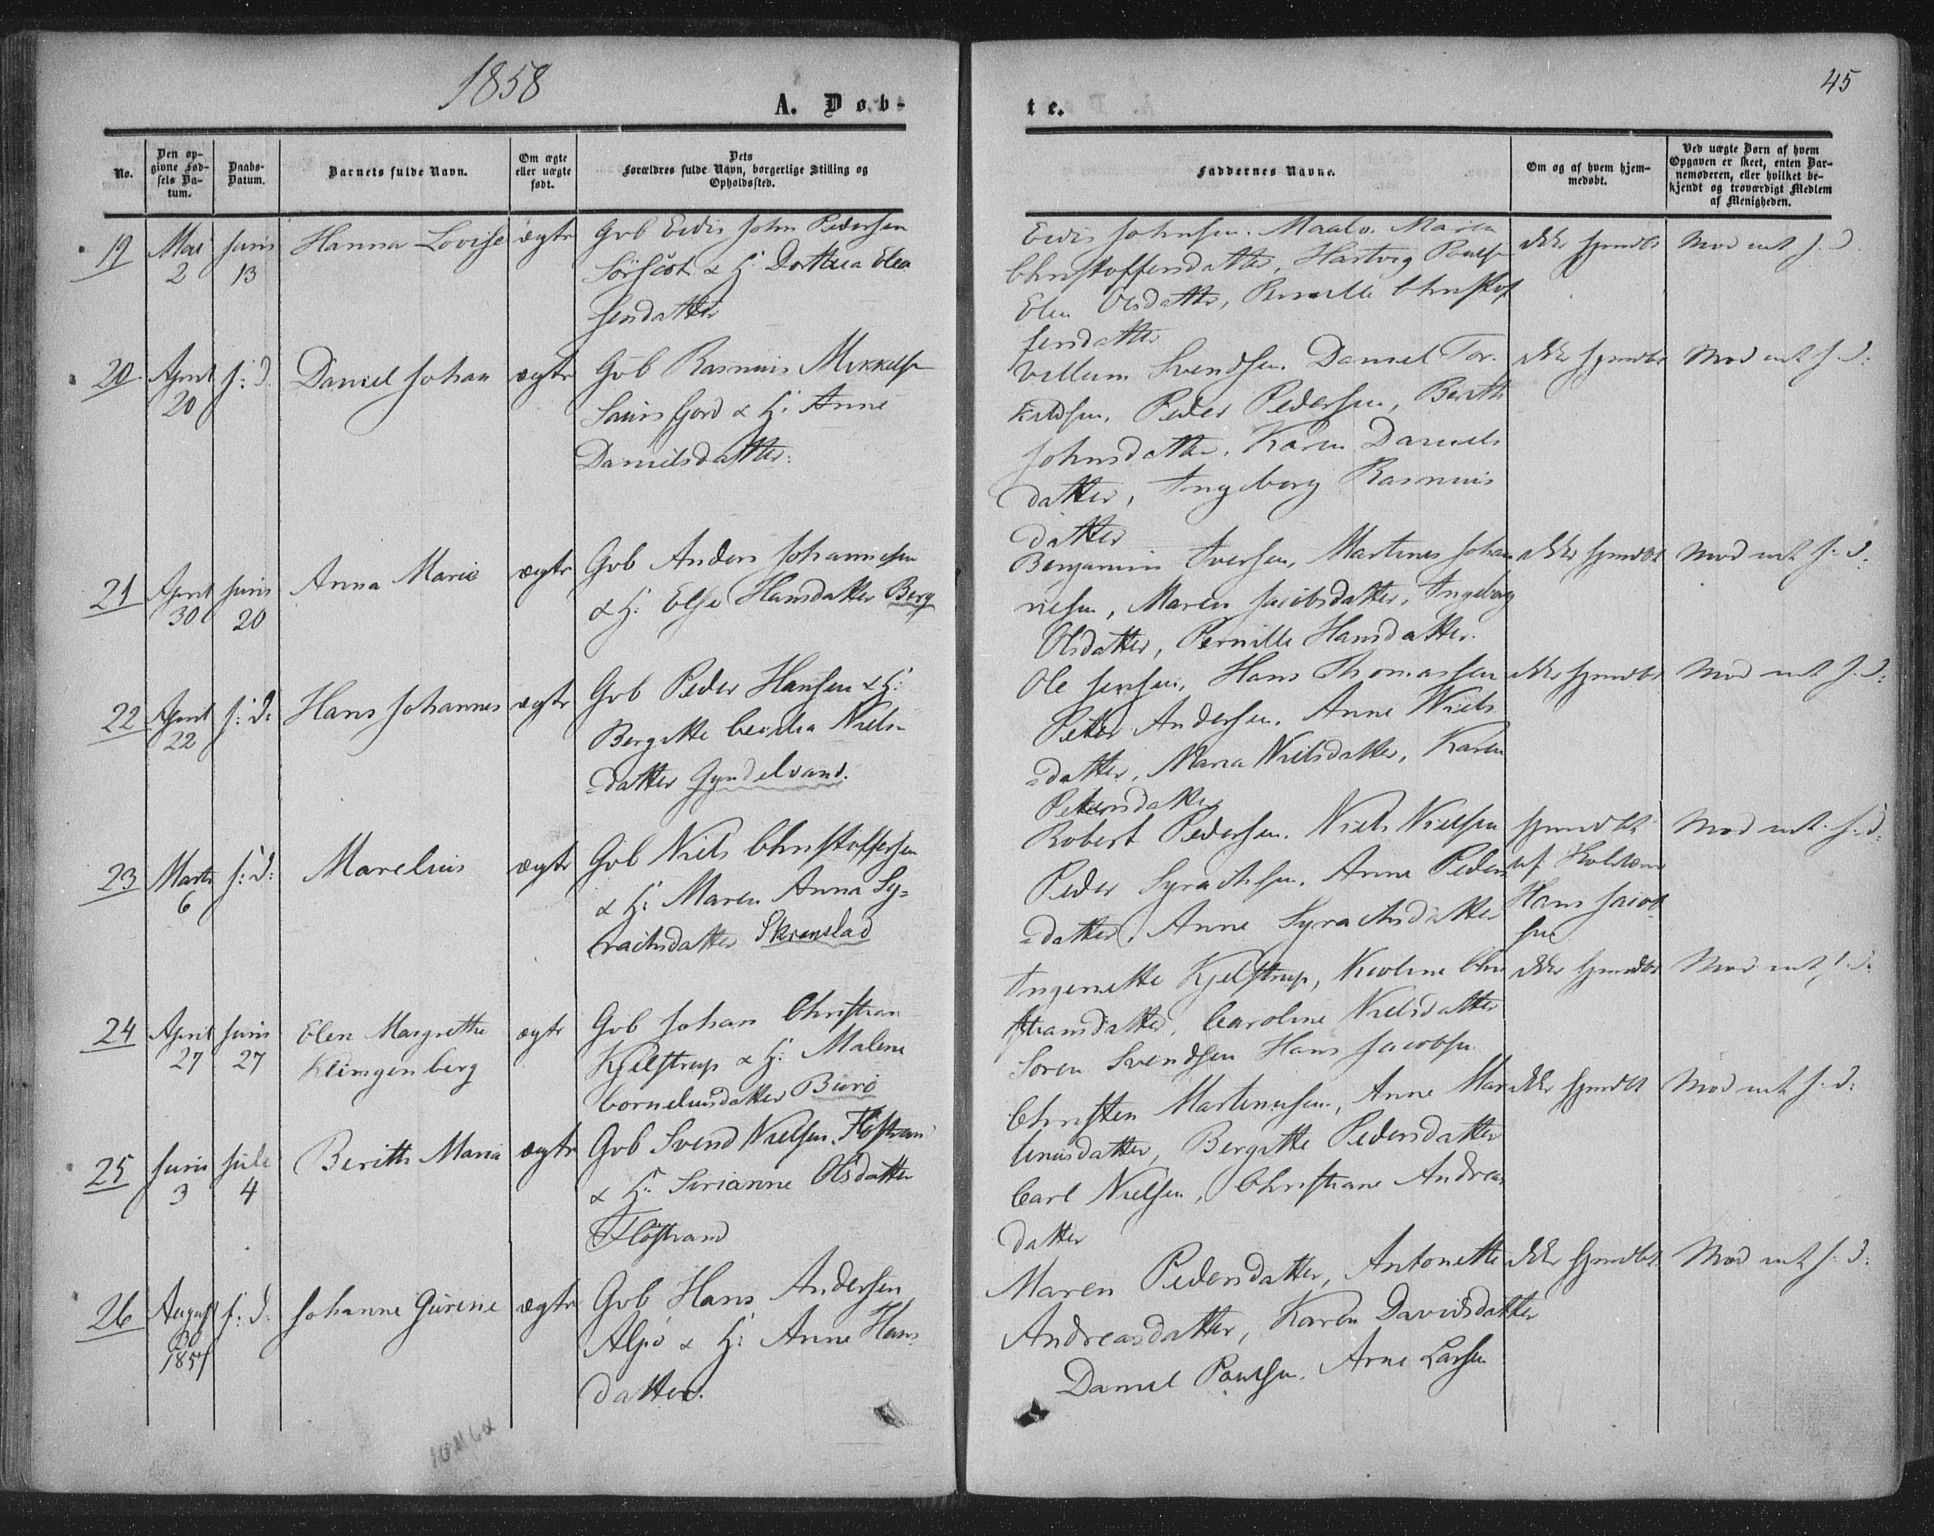 1858
45
A. Døb-
te.
No.
Den op-
givne Fød-
sels Da-
tum.
Daabs-
Datum.
Barnets fulde Navn.
Om ægte
eller uægte
født.
Dets
Forældres fulde Navn, borgerlige Stilling og
Opholdssted.
Faddernes Navne.
Om og af hvem hjem-
medøbt.
Ved uægte Børn af hvem
Opgaven er skeet, enten Bar-
nemoderen, eller hvilket be-
kjendt og troværdigt Medlem
af Menigheden.
19
Mai
2
Juni
13
Hanna Lovise
ægte
Gvb Edis John Pedersen
& H: Dorthea Elea
sendatter
Edis Johnsen. Maria
Christoffersdatter, Hartvig Pouls
Elen Olsdatter, Pernille Christof
fersdatter
ikke hjemdbt
Mod
20
April
20
s: d.
Daniel Johan
ægte
Gvb Rasmus Mikkels
& H: Anne
Danielsdatter.
Villum Svendsen. Daniel Tor-
kildsen, Peder Pedersen, Berith
Johnsdatter, Karen Daniels
datter, Ingeborg Rasmus
datter
ikke hjemdbt
Mod
21
April
30
Juni
20
Anna Marie
ægte
Gvb Anders Johannesen
& H: Else Hansdatter Berg
Benjamin Iversen, Martinus Johan
nesen, Maren Jacobsdatter, Ingeborg
Olsdatter, Pernille Hansdatter.
ikke hjemdbt
Mod
22
April
22
s: d:
Hans Johannes
ægte
Gvb Peder Hansen & H:
Bergitte Cecilia Niels-
datter Gyndelvand.
Ole Jensen, Hans Thomassen
Peter Andersen, Anne Niels
datter, Maria Nielsdatter, Karen
Petersdatter
ikke hjemdbt
Mod
23
Marts
6
s: d:
Marelius
ægte
Gvb Niels Christoffersen
& H: Maren Anna Sy-
rachsdatter Skrenslad
Robert Pedersen. Niels Nielsen
Peder Syrachsen. Anne Peders
datter, Anne Syrachsdatter
hjemdbt
af
Hans Jacob
sen
Mod
24
April
27
Juni
27
Elen Margrethe
Klingenberg
ægte
Gvb Johan Christian
Kjelstrup & H: Malene
Corneliusdatter Burø
Ingenette Kjelstrup, Nicoline Chri
stiansdatter, Caroline Nielsdatter
Soren Svendsen Hans Jacobsen
ikke hjemdbt
Mod
25
Juni
3
Juli
4
Berith Maria
ægte
Gvb Svend Nielsen Flostrand
& H: Sirianne Olsdatter
Flostrand
Christen Martinusen, Anne Mar
tinusdatter, Bergitte Pedersdatter
Carl Nielsen, Christiane Andreas
datter
ikke hjemdbt
Mod
26
August
1857
s: d.
Johanne Gurine
ægte
Gvb Hans Andersen
Alsiø & H: Anne Hans
datter.
Maren Pedersdatter, Antonette
Andreasdatter, Karen Davidsdatter
Daniel Poulsen. Arne Larsen
ikke hjemdbt
Mod